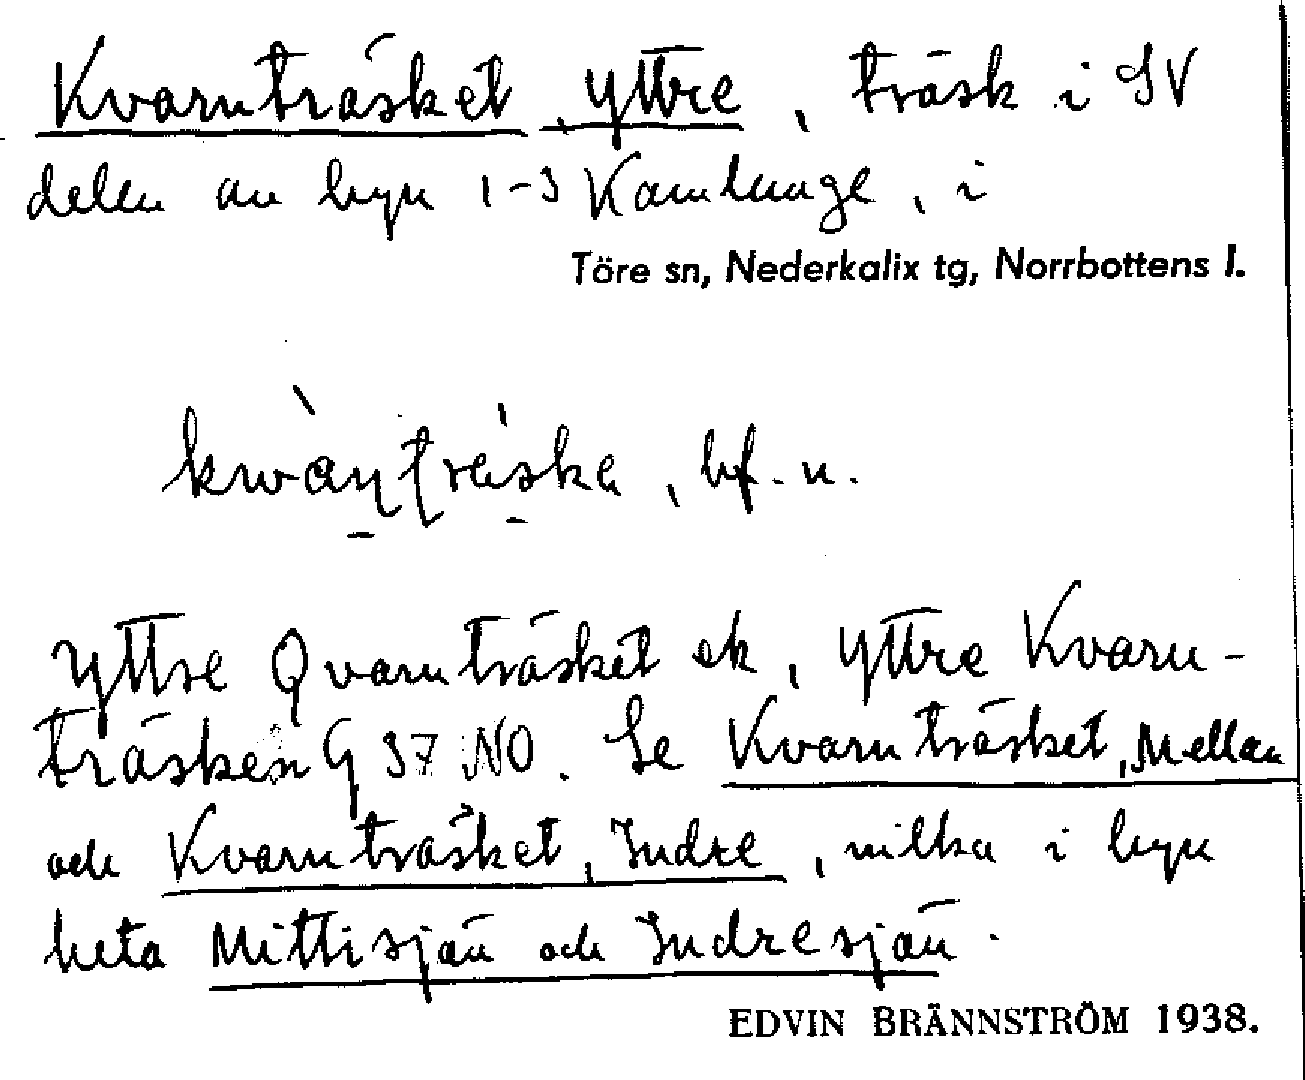 Kvarnträsket, Yttre, träsk i SV
delen av byn 1-3 Kamlunge, i
Töre sn, Nederkalix tg, Norrbottens l.
bf. n.
Yttre Qvarnträsket ek, Yttre Kvarn-
träsken G 37 NO. Se Kvarnträsket, Mellan
och Kvarnträsket, Indre, vilka i byn
heta Mittisjän och Indresjän.
EDVIN BRÄNNSTRÖM 1938.